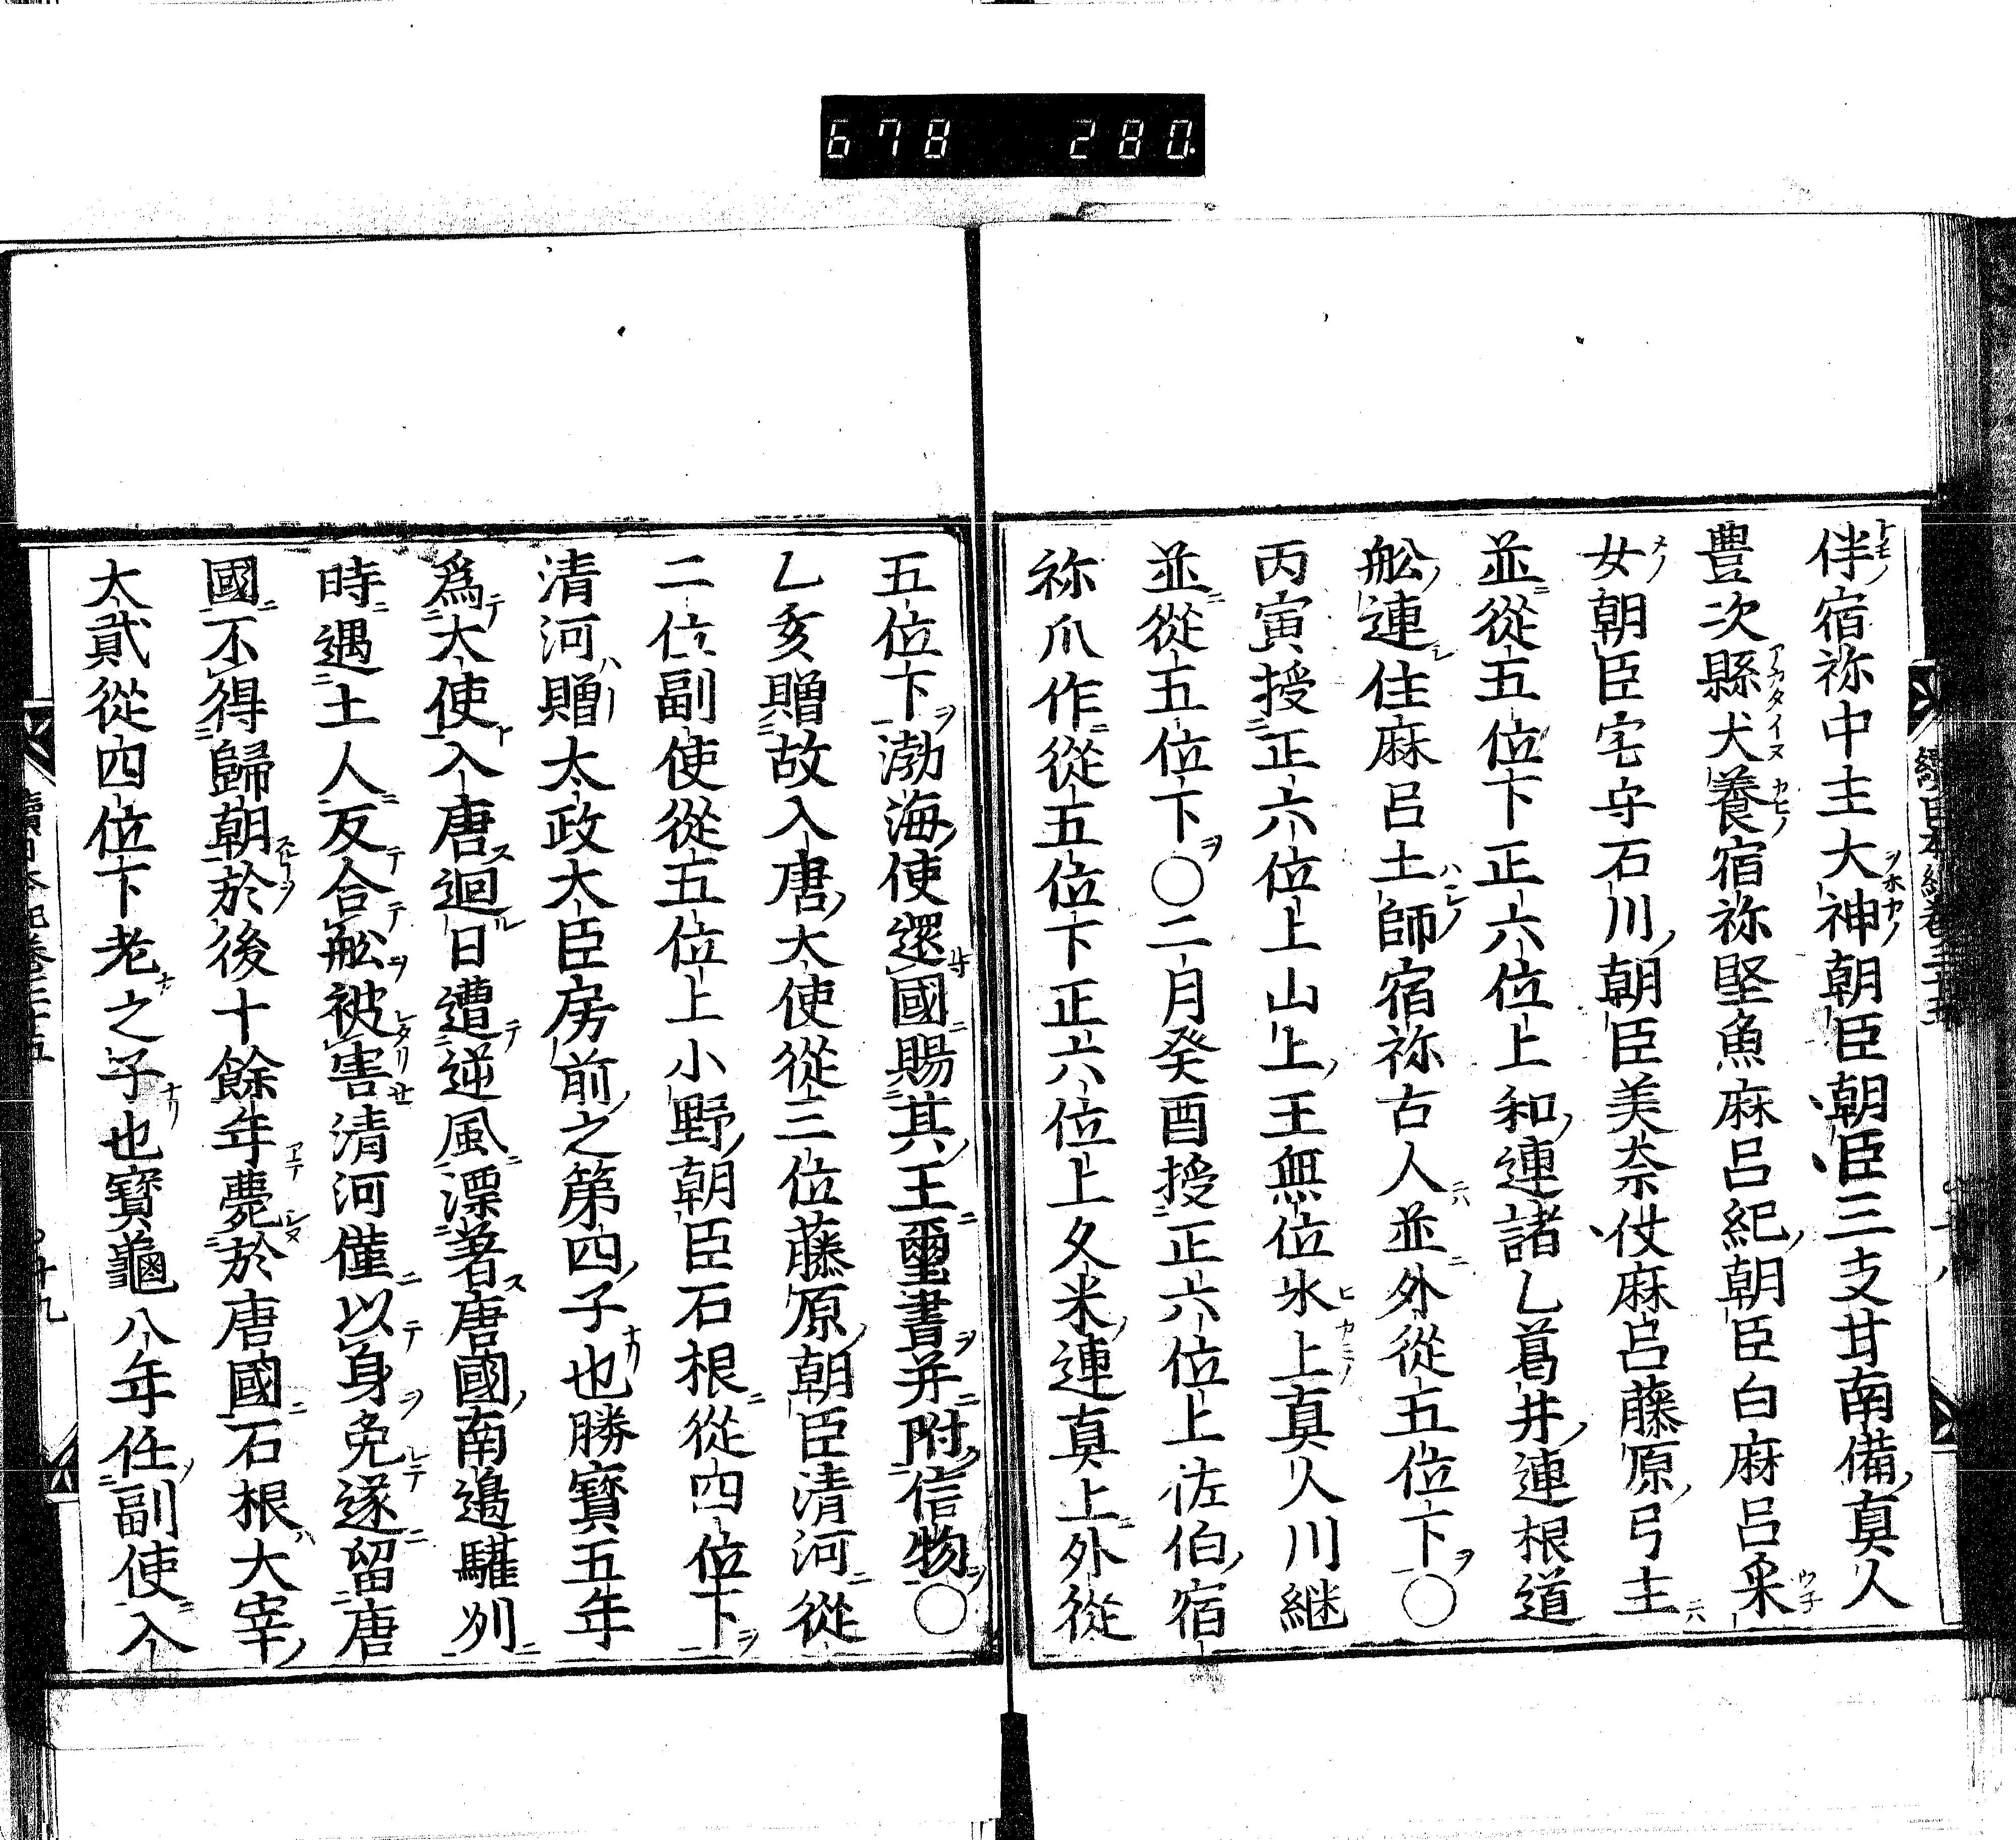 678 280
伴宿祢中主大神朝臣朝臣三支甘南備真人
豊次縣犬養宿祢堅魚麻呂紀朝臣白麻呂釆
女朝臣宅守石川朝臣美奈伎麻呂藤原弓主
並從五位下正六位上和連諸乙葛井連根道
舩連住麻呂土師宿祢古人並外從五位下〇
丙寅授正六位上山上王無位氷上真人川継
並從五位下〇二月癸酉授正六位上佐伯宿
祢爪作從五位下正六位上久米連真上外從
五位下渤海使還國賜其王璽書并附信物〇
乙亥贈故入唐大使從三位藤原朝臣清河從
二位副使從五位上小野朝臣石根從四位下
清河贈太政大臣房前之第四子也勝寳五年
爲大使入唐迴日遭逆風漂著唐國南邊驩列
時遇土人反合舩被害清河僅以身免遂留唐
國不得歸朝於後十餘年薨於唐國石根大宰
大貳從四位下老之子也寳龜八年任副使入